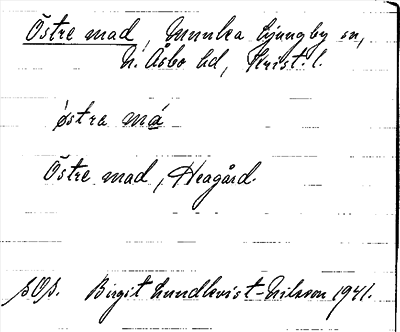 Östre mad, Munka Ljungby sn,
N. Åsbo hd, Krist. l.
östra må
Östre mad, Heagård.
SOS. Birgit Lundkvist-Nilsson 1941.